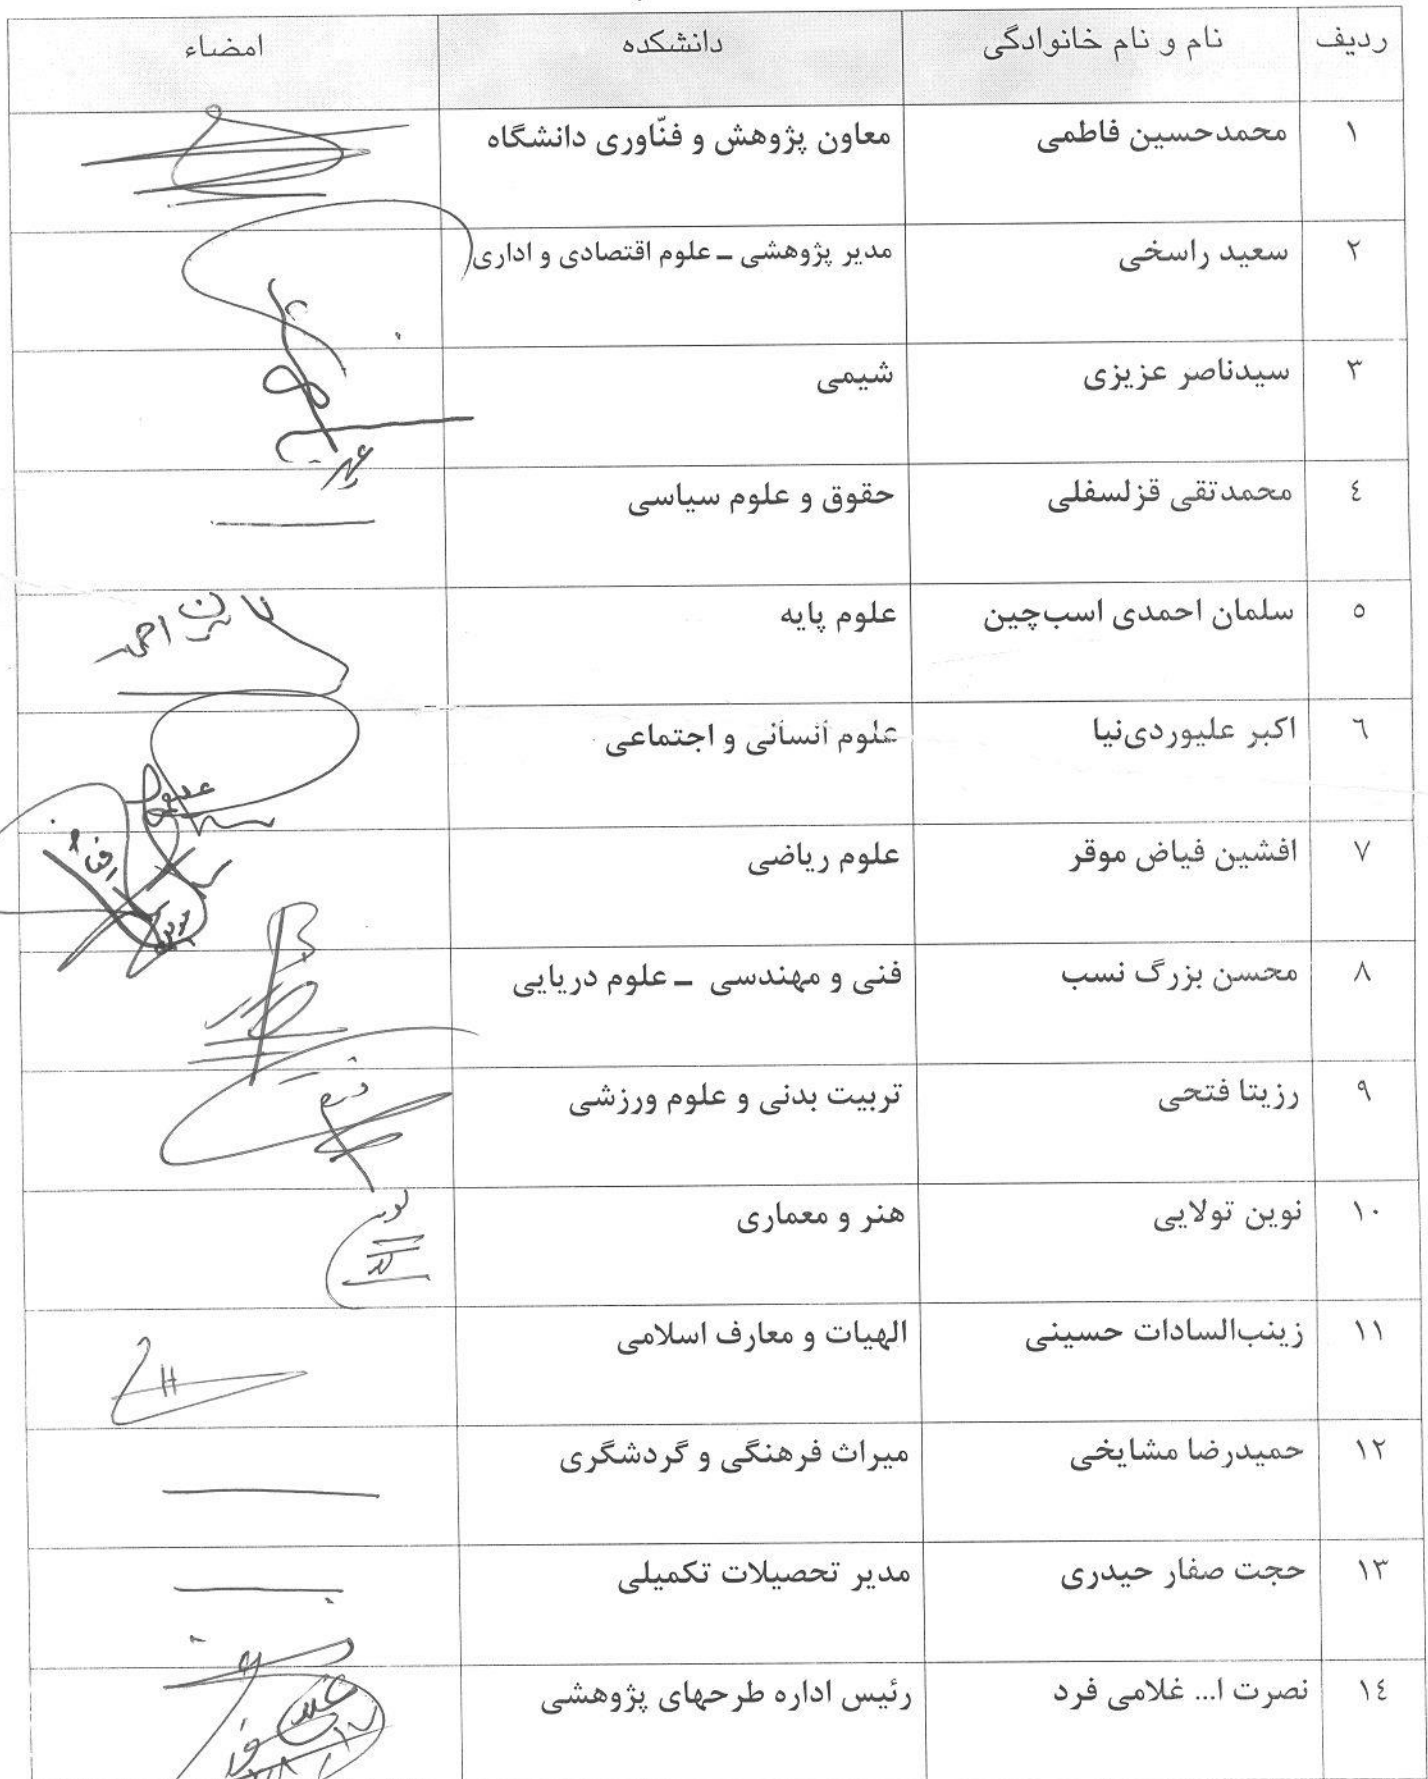 ردیف نام و نام خانوادگی دانشکده امضاء
۱ محمدحسین فاطمی معاون پژوهش و فنّاوری دانشگاه
۲ سعید راسخی مدیر پژوهشی ـ علوم اقتصادی و اداری
۳ سیدناصر عزیزی شیمی
٤ محمدتقی قزلسفلی حقوق و علوم سیاسی
٥ سلمان احمدی اسب‌چین علوم پایه
٦ اکبر علیوردی‌نیا علوم انسانی و اجتماعی
۷ افشین فیاض موقر علوم ریاضی
۸ محسن بزرگ نسب فنی و مهندسی ـ علوم دریایی
۹ رزیتا فتحی تربیت بدنی و علوم ورزشی
۱۰ نوین تولایی هنر و معماری
۱۱ زینب‌السادات حسینی الهیات و معارف اسلامی
۱۲ حمیدرضا مشایخی میراث فرهنگی و گردشگری
۱۳ حجت صفار حیدری مدیر تحصیلات تکمیلی
۱٤ نصرت ا... غلامی فرد رئیس اداره طرحهای پژوهشی